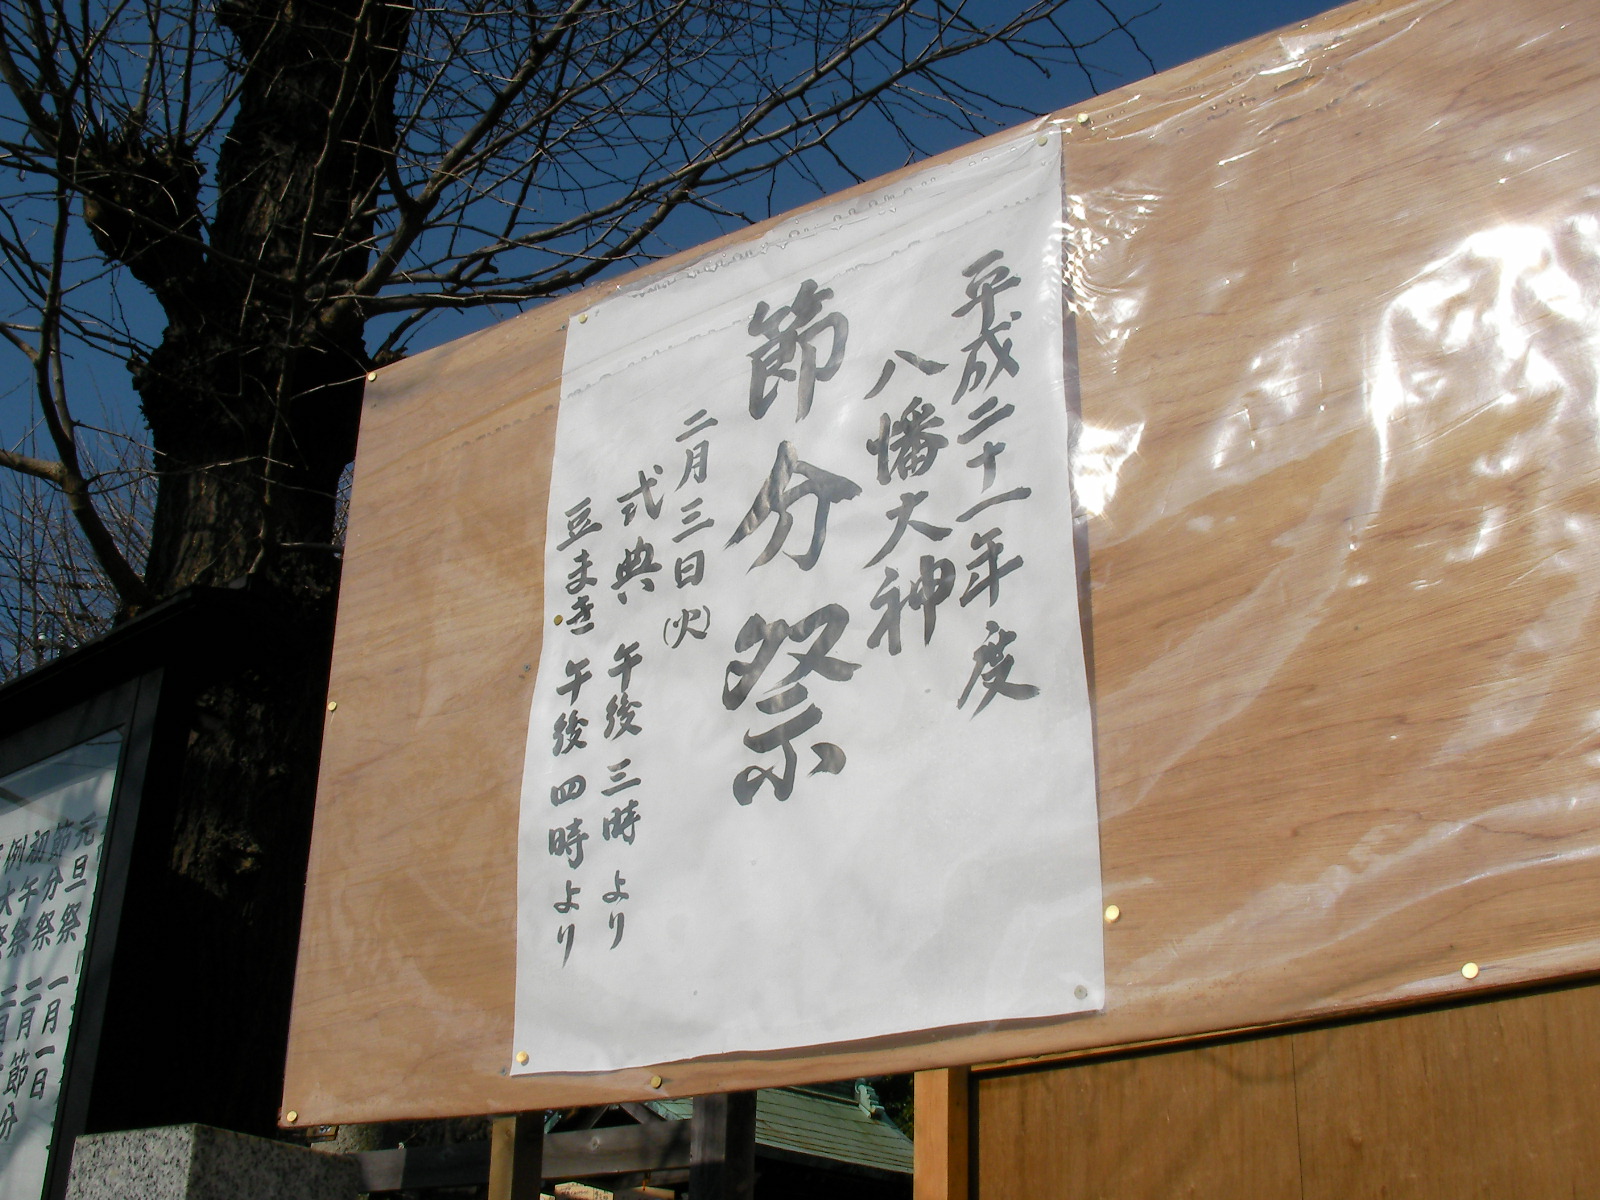 平成二十一年度
八幡大神
節分祭
二月三日(火)
式典 午後三時より
豆まき 午後四時より
元旦祭 一月一日
節分祭 二月節分
初午祭 二月
例大祭